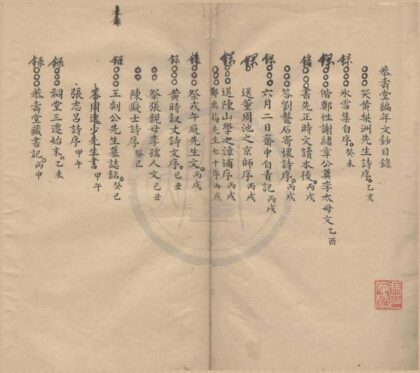 恭壽堂編年文鈔目錄
錄 哭黃梨洲先生詩序 乙亥
錄 氷雪集自序 癸未
錄 偕鄭性謝緒章公奠李太母文 乙酉
錄 書先正時文讀本後 丙戌
答劉鰲石寄懷詩序 丙戌
錄 六月二日齋中自責記 丙戌
錄 送董周池之京師序 丙戌
錄 送陳山學之漳浦序 丙戌
鄭 梅先生七十序 丙戌
錄 祭戌午庭先生文 丙戌
錄 黃時 丈詩文序 己丑
祭張親母李孺人文 己丑
陳 士詩序 癸巳
錄 王 公先生墓誌銘 癸巳
答周 少先生書 甲午
張志呂詩序 甲午
錄 祠堂三遷始末 乙未
錄 恭壽堂藏書記 丙申